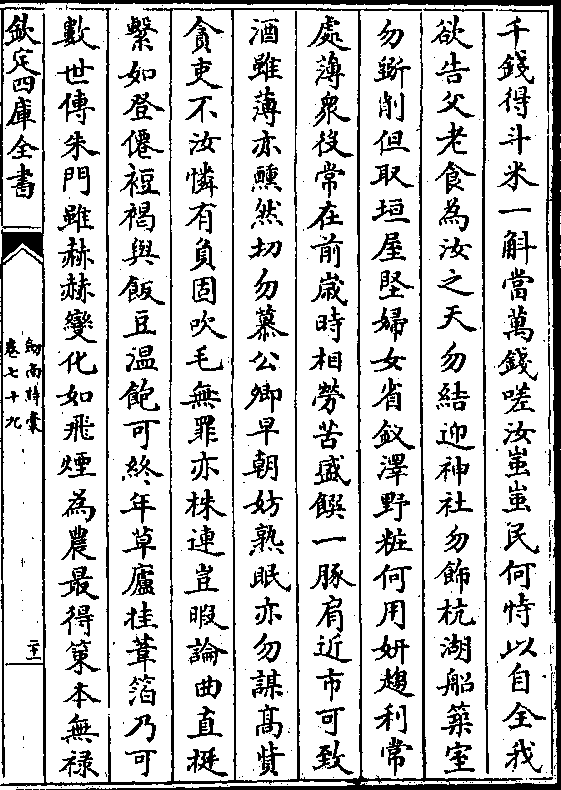 千錢得斗米一斛當萬錢嗟汝蚩蚩民何恃以自全我
欲告父老食為汝之天勿結迎神社勿飾杭湖船築室
勿斲削但取垣屋堅婦女省釵澤野粧何用妍趨利常
處薄衆役常在前歲時相勞苦盛饌一豚肩近市可致
酒雖薄亦醺然切勿慕公卿早朝妨熟眠亦勿謀高貲
貪吏不汝憐有負固吹毛無罪亦株連豈暇論曲直挺
繫如登僊裋褐與飯豆溫飽可終年草廬挂葦箔乃可
數世傳朱門雖赫赫變化如飛煙為農最得策本無祿
欽定四庫全書
劒南詩稾
卷七十九
二十一